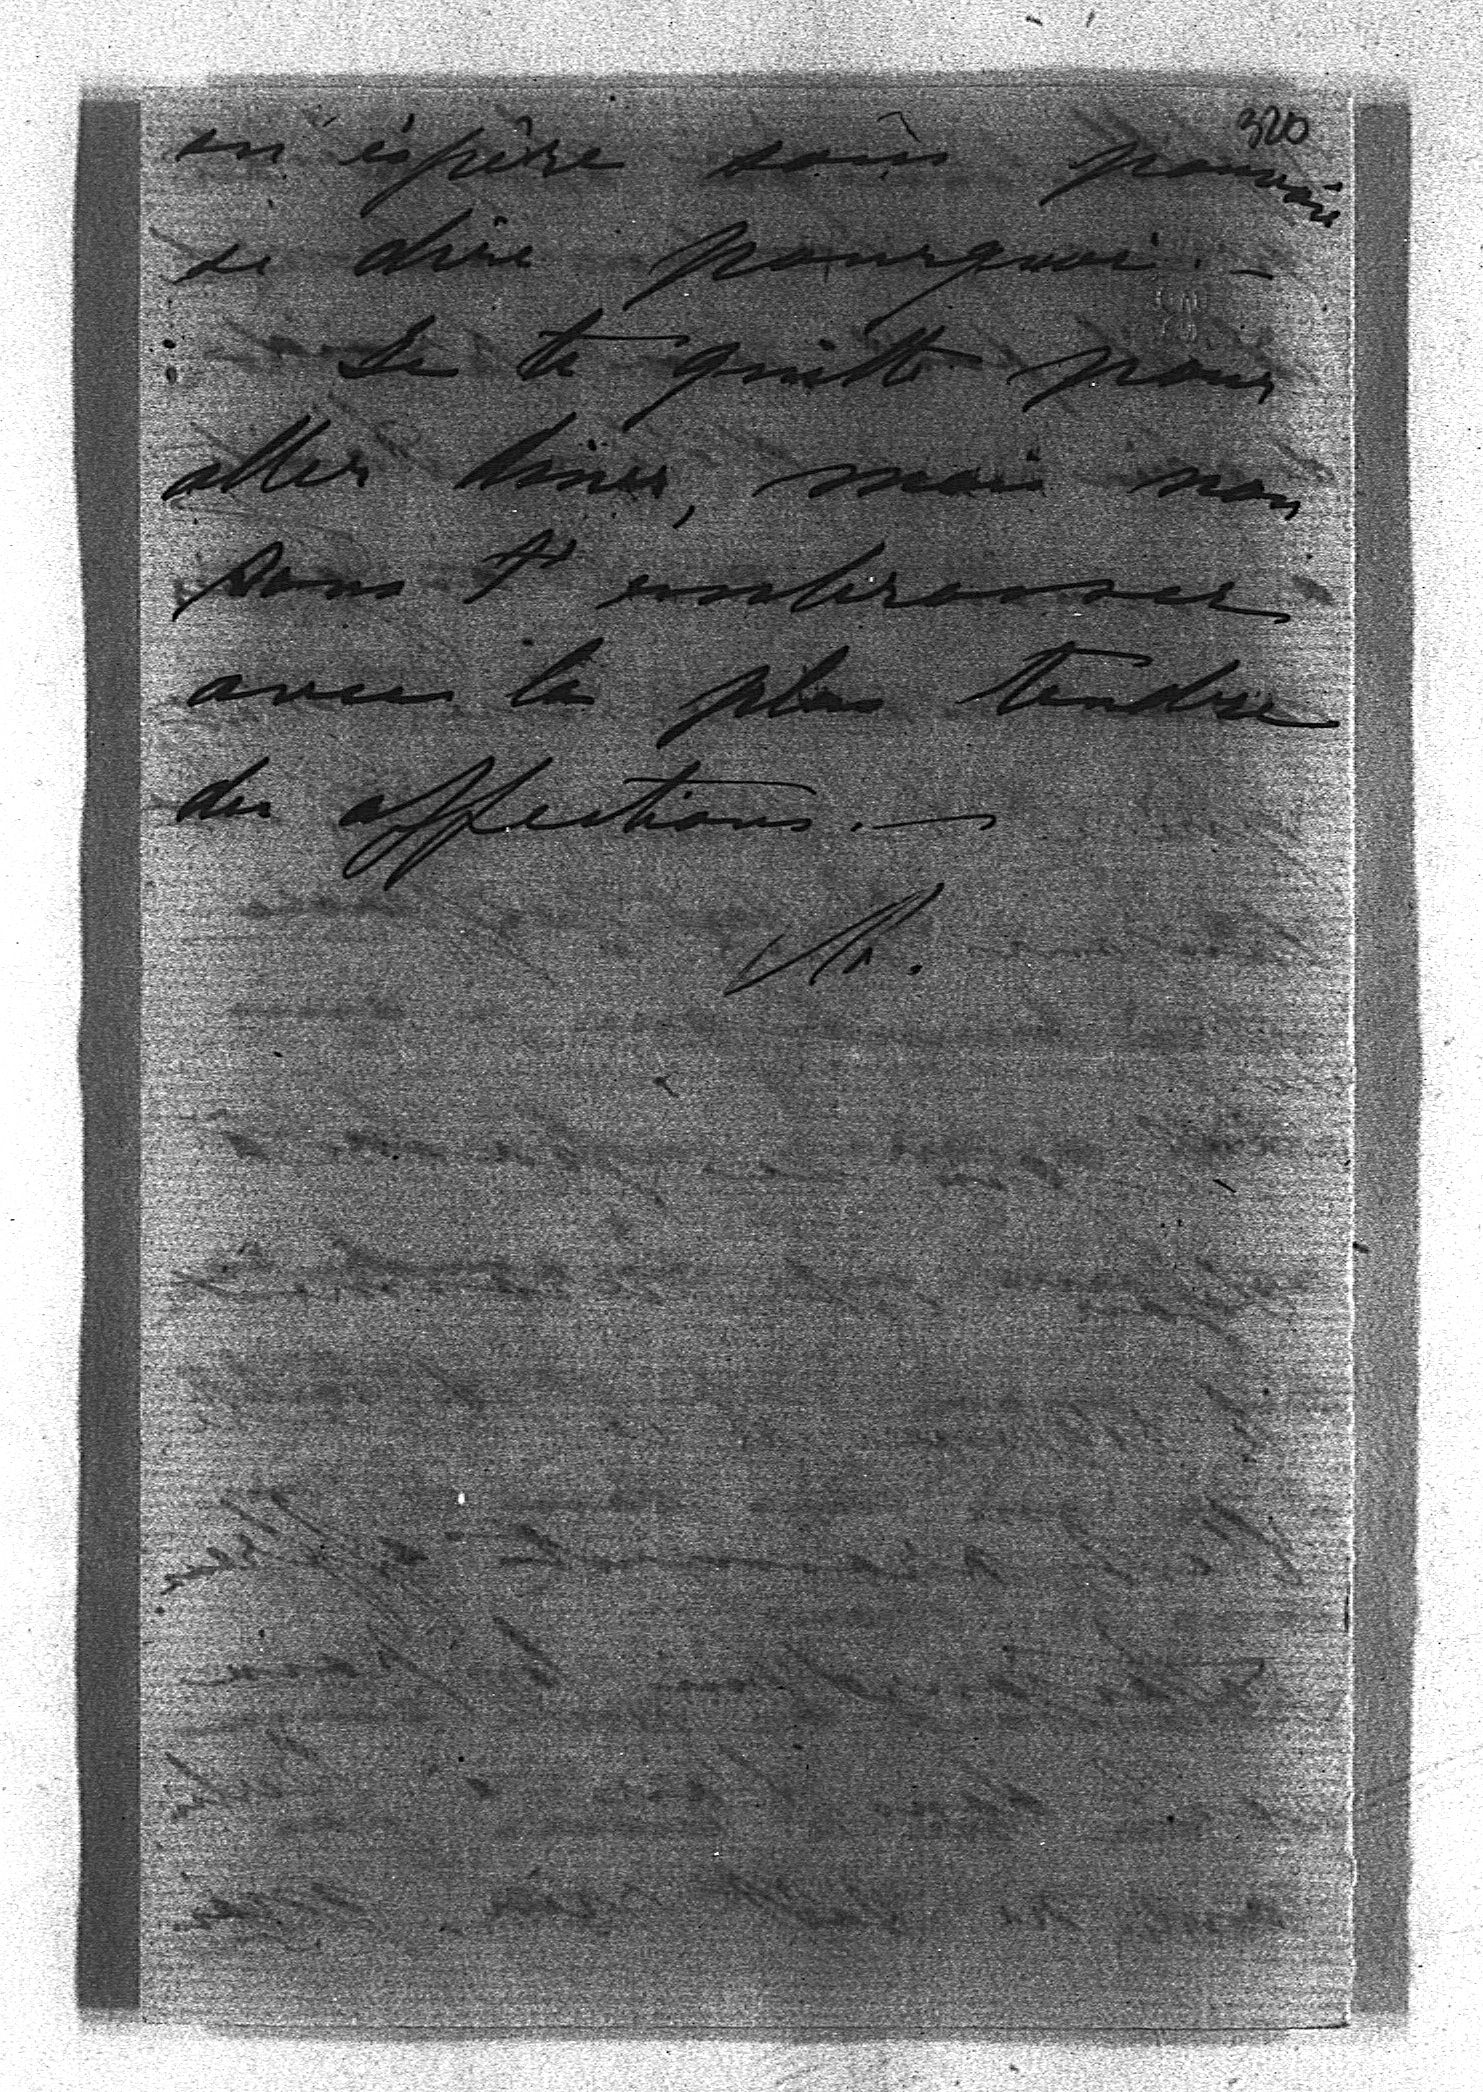 320
on éspère sans pouvoir
se dire pourquoi. —
Je te quitte pour
aller diner, mais non
sans t'embrasser
avec la plus tendre
des affections. —
N.